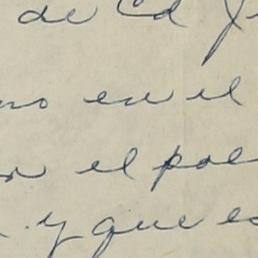 de Cd J
no en el
n el pue
y que es